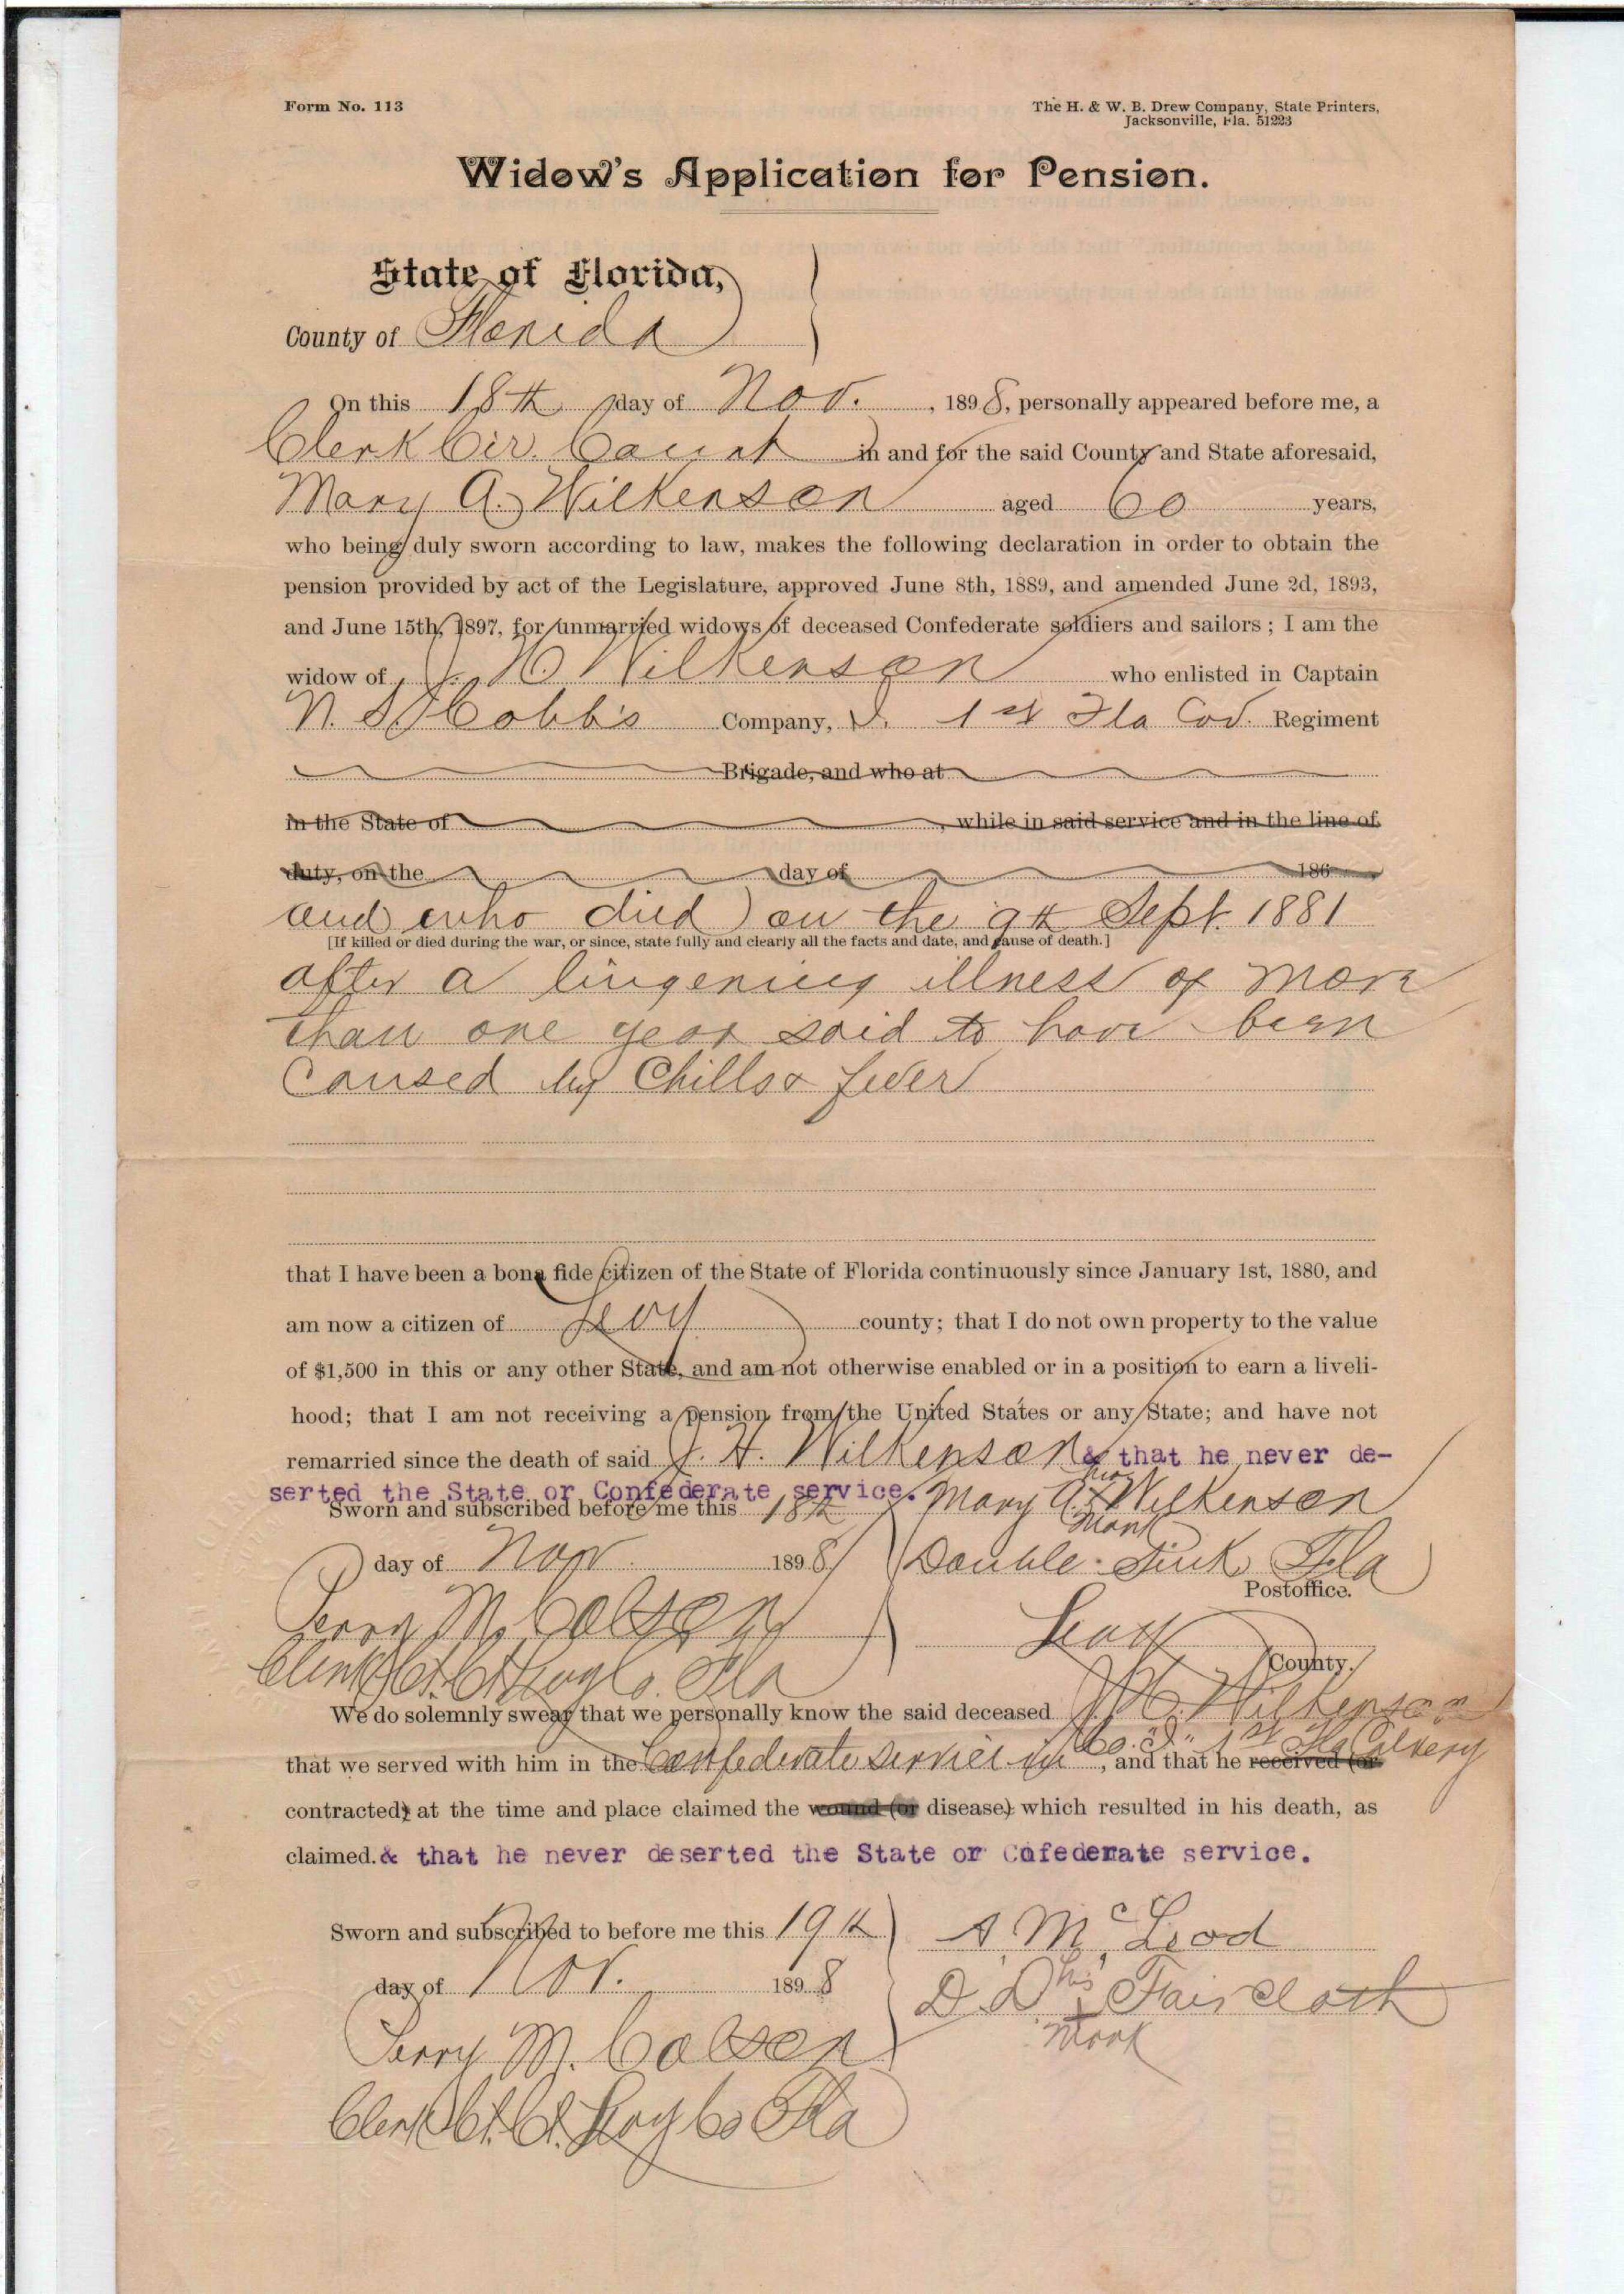 Form No. 113
The H. & W. B. Drew Company, State Printers,
Jacksonville, Fla. 51223
Widow's Application for Pension.
State of Florida,
County of Florida
On this 18th day of Nov. , 1898, personally appeared before me, a
Clerk Cir. Court in and for the said County and State aforesaid,
Mary A. Wilkerson aged 60 years,
who being duly sworn according to law, makes the following declaration in order to obtain the
pension provided by act of the Legislature, approved June 8th, 1889, and amended June 2d, 1893,
and June 15th, 1897, for unmarried widows of deceased Confederate soldiers and sailors ; I am the
widow of J. H Wilkerson who enlisted in Captain
N. S. Cobb's Company, I. 1st Fla Cav. Regiment
Brigade, and who at
in the State of , while in said service and in the line of
duty, on the day of 186
and who died on the 9th Sept. 1881
[If killed or died during the war, or since, state fully and clearly all the facts and date, and cause of death.]
after a lingering illness of more
than one year said to have been
Caused by Chills & fever
that I have been a bona fide citizen of the State of Florida continuously since January 1st, 1880, and
am now a citizen of Levy county; that I do not own property to the value
of $1,500 in this or any other State, and am not otherwise enabled or in a position to earn a liveli-
hood; that I am not receiving a pension from the United States or any State; and have not
remarried since the death of said J. H. Wilkerson & that he never de-
serted the State or Confederate service.
Sworn and subscribed before me this 18th Mary A. her x mark Wilkerson
day of Nov. 1898 Double Sink, Fla
Postoffice.
Perry M. Colson Levy
County.
Clerk Ct. Ct Levy Co. Fla
We do solemnly swear that we personally know the said deceased J. H. Wilkerson
that we served with him in the Confederate service in Co. "I" 1st Fla Calvery, and that he received (or
contracted) at the time and place claimed the wound (or disease) which resulted in his death, as
claimed. & that he never deserted the State or Cofederate service.
Sworn and subscribed to before me this 19th A. McLeod
day of Nov. 1898 D. D. his x mark Faircloth
Perry M. Colson
Clerk Ct. Ct. Levy Co Fla